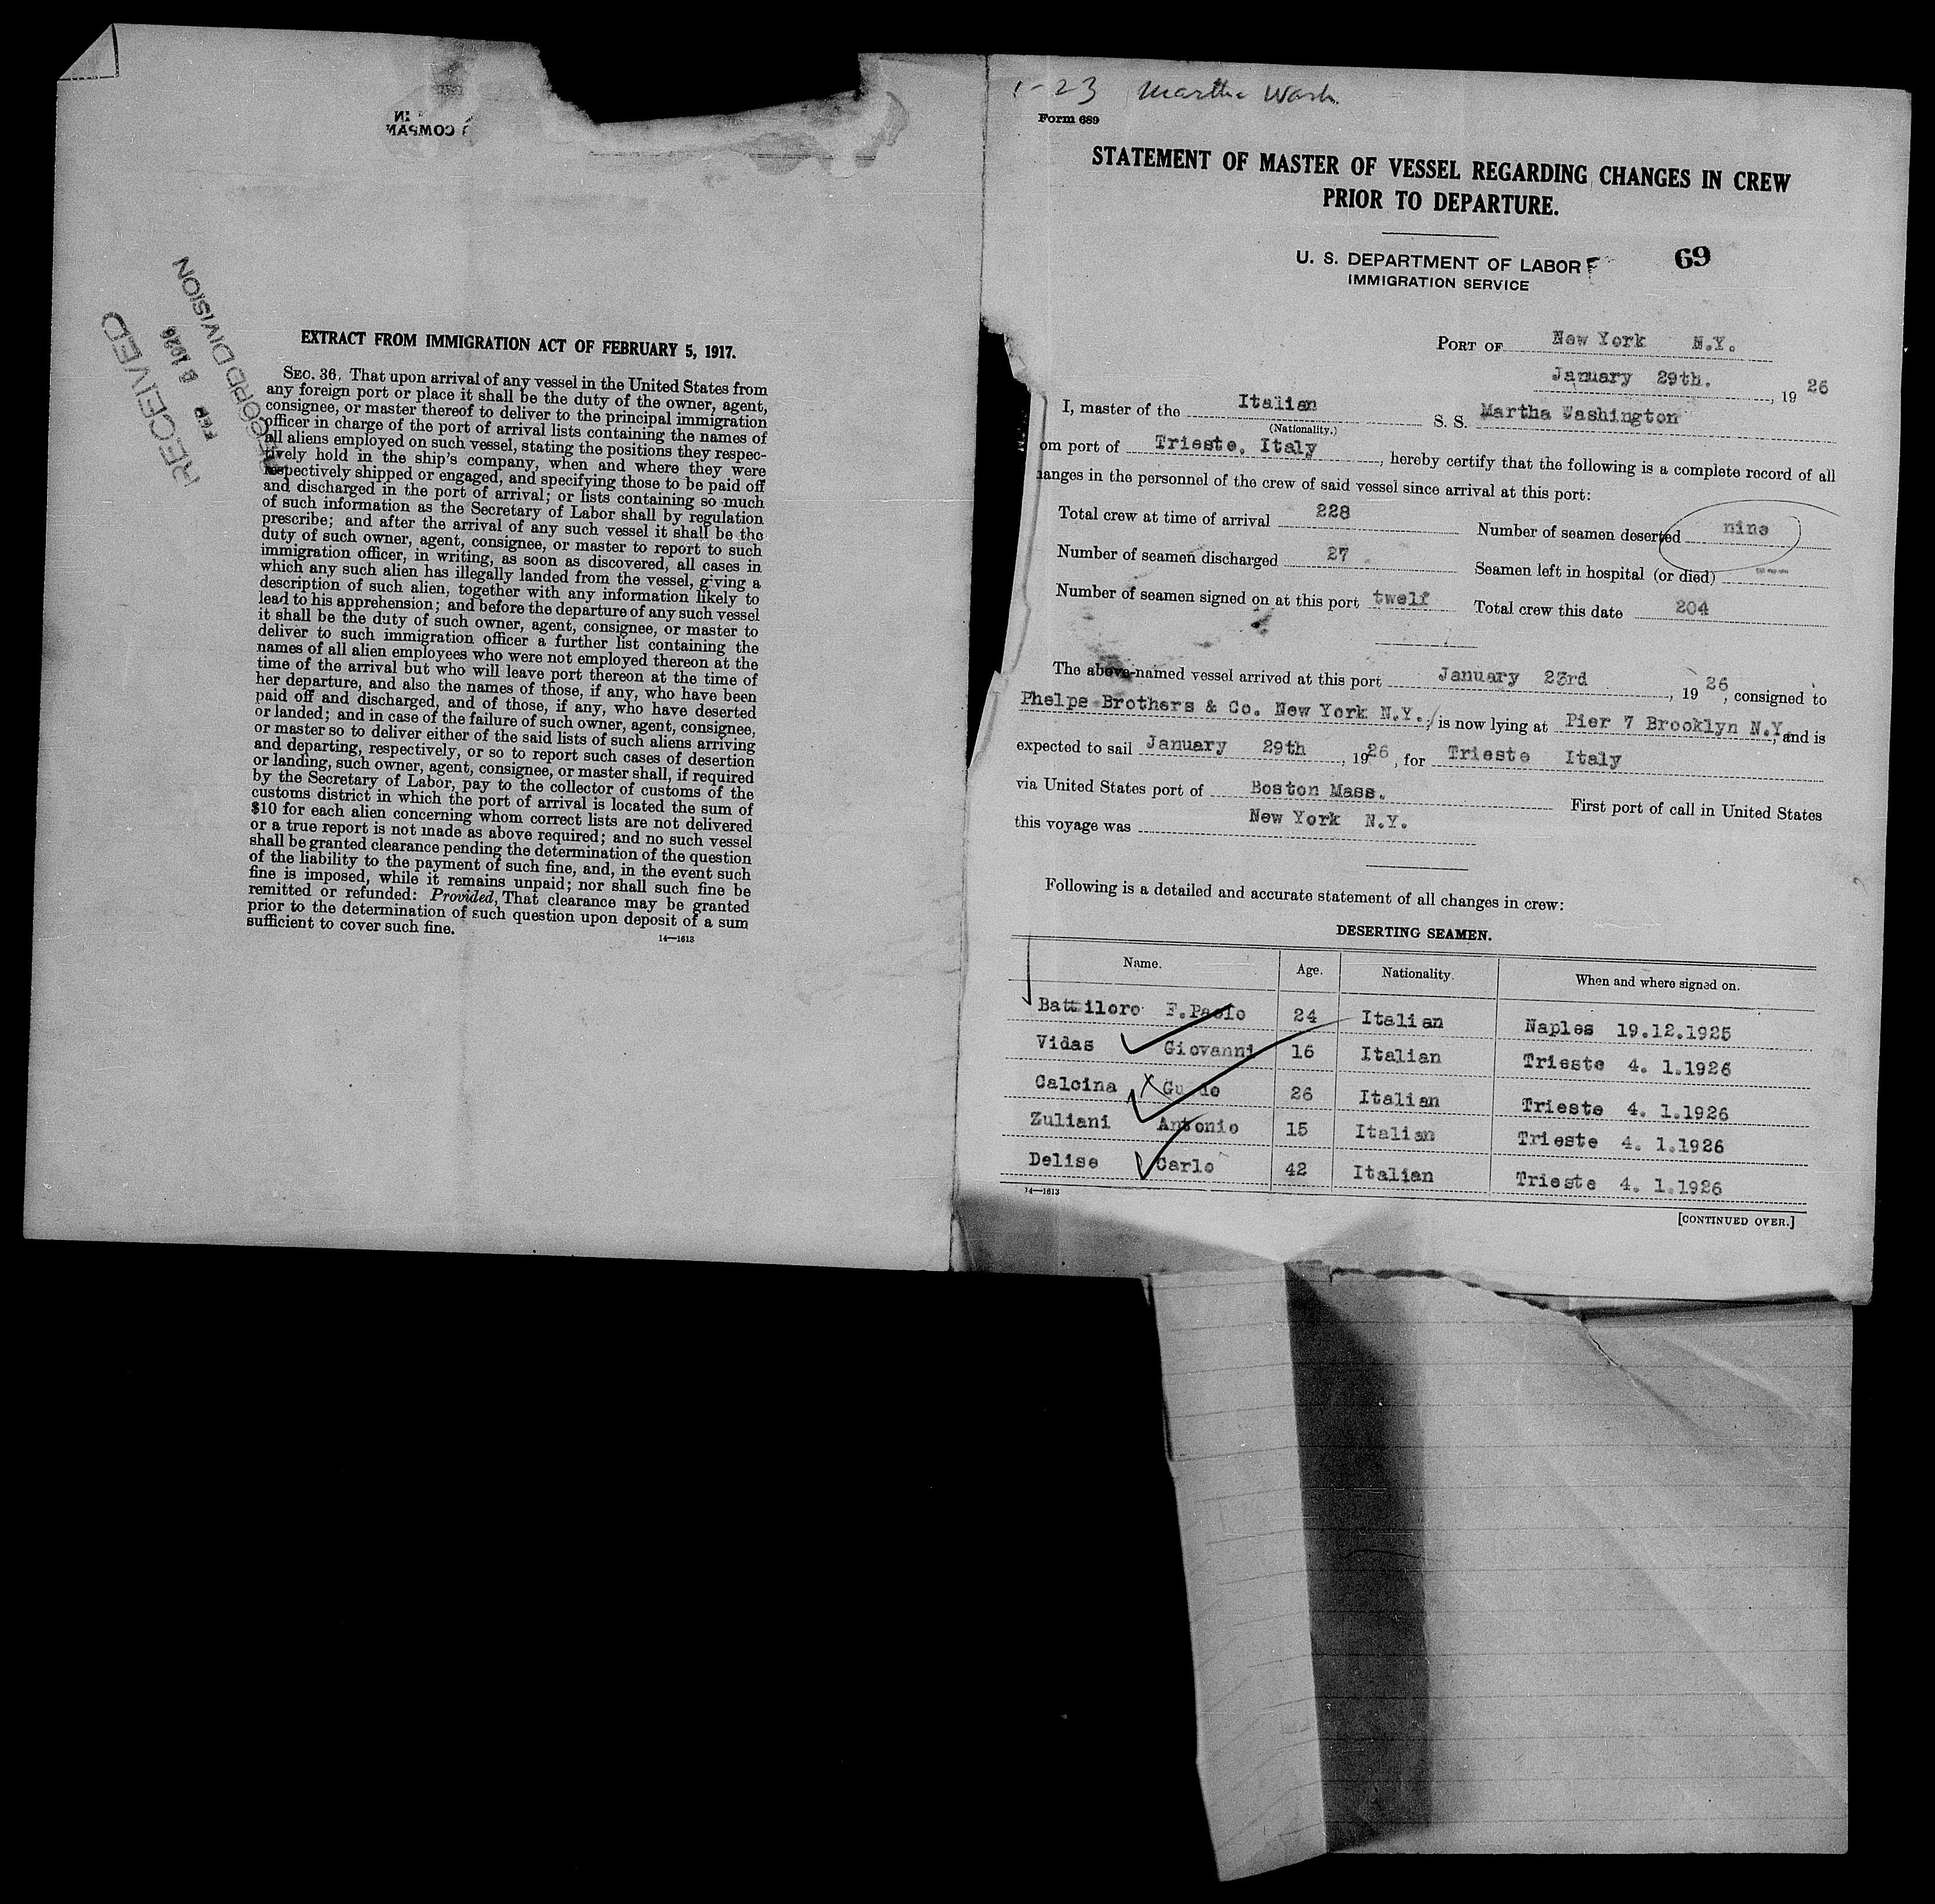 IN
COMPAN
RECEIVED
FEB 6 1926
RECORD DIVISION
EXTRACT FROM IMMIGRATION ACT OF FEBRUARY 5, 1917.
SEC. 36. That upon arrival of any vessel in the United States from
any foreign port or place it shall be the duty of the owner, agent,
consignee, or master thereof to deliver to the principal immigration
officer in charge of the port of arrival lists containing the names of
all aliens employed on such vessel, stating the positions they respec-
tively hold in the ship's company, when and where they were
respectively shipped or engaged, and specifying those to be paid off
and discharged in the port of arrival; or lists containing so much
of such information as the Secretary of Labor shall by regulation
prescribe; and after the arrival of any such vessel it shall be the
duty of such owner, agent, consignee, or master to report to such
immigration officer, in writing, as soon as discovered, all cases in
which any such alien has illegally landed from the vessel, giving a
description of such alien, together with any information likely to
lead to his apprehension; and before the departure of any such vessel
it shall be the duty of such owner, agent, consignee, or master to
deliver to such immigration officer a further list containing the
names of all alien employees who were not employed thereon at the
time of the arrival but who will leave port thereon at the time of
her departure, and also the names of those, if any, who have been
paid off and discharged, and of those, if any, who have deserted
or landed; and in case of the failure of such owner, agent, consignee,
or master so to deliver either of the said lists of such aliens arriving
and departing, respectively, or so to report such cases of desertion
or landing, such owner, agent, consignee, or master shall, if required
by the Secretary of Labor, pay to the collector of customs of the
customs district in which the port of arrival is located the sum of
$10 for each alien concerning whom correct lists are not delivered
or a true report is not made as above required; and no such vessel
shall be granted clearance pending the determination of the question
of the liability to the payment of such fine, and, in the event such
fine is imposed, while it remains unpaid; nor shall such fine be
remitted or refunded: Provided, That clearance may be granted
prior to the determination of such question upon deposit of a sum
sufficient to cover such fine.
14—1613
1-23 Martha Wash.
Form 689
STATEMENT OF MASTER OF VESSEL REGARDING CHANGES IN CREW
PRIOR TO DEPARTURE.
U. S. DEPARTMENT OF LABOR
69
IMMIGRATION SERVICE
PORT OF New York N.Y.
January 29th. , 19 26
I, master of the Italian S. S. Martha Washington
(Nationality.)
om port of Trieste, Italy , hereby certify that the following is a complete record of all
hanges in the personnel of the crew of said vessel since arrival at this port:
Total crew at time of arrival 228 Number of seamen deserted nine
Number of seamen discharged 27 Seamen left in hospital (or died) ---
Number of seamen signed on at this port twelf Total crew this date 204
The above-named vessel arrived at this port January 23rd , 19 26, consigned to
Phelps Brothers & Co. New York N.Y., is now lying at Pier 7 Brooklyn N.Y., and is
expected to sail January 29th , 19 26 , for Trieste Italy
via United States port of Boston Mass. First port of call in United States
this voyage was New York N.Y.
Following is a detailed and accurate statement of all changes in crew:
DESERTING SEAMEN.
Name. Age. Nationality. When and where signed on.
Battiloro F.Paolo 24 Italian Naples 19.12.1925
Vidas Giovanni 16 Italian Trieste 4. 1.1926
Calcina Guido 26 Italian Trieste 4. 1.1926
Zuliani Antonio 15 Italian Trieste 4. 1.1926
Delise Carlo 42 Italian Trieste 4. 1.1926
14—1613
[CONTINUED OVER.]